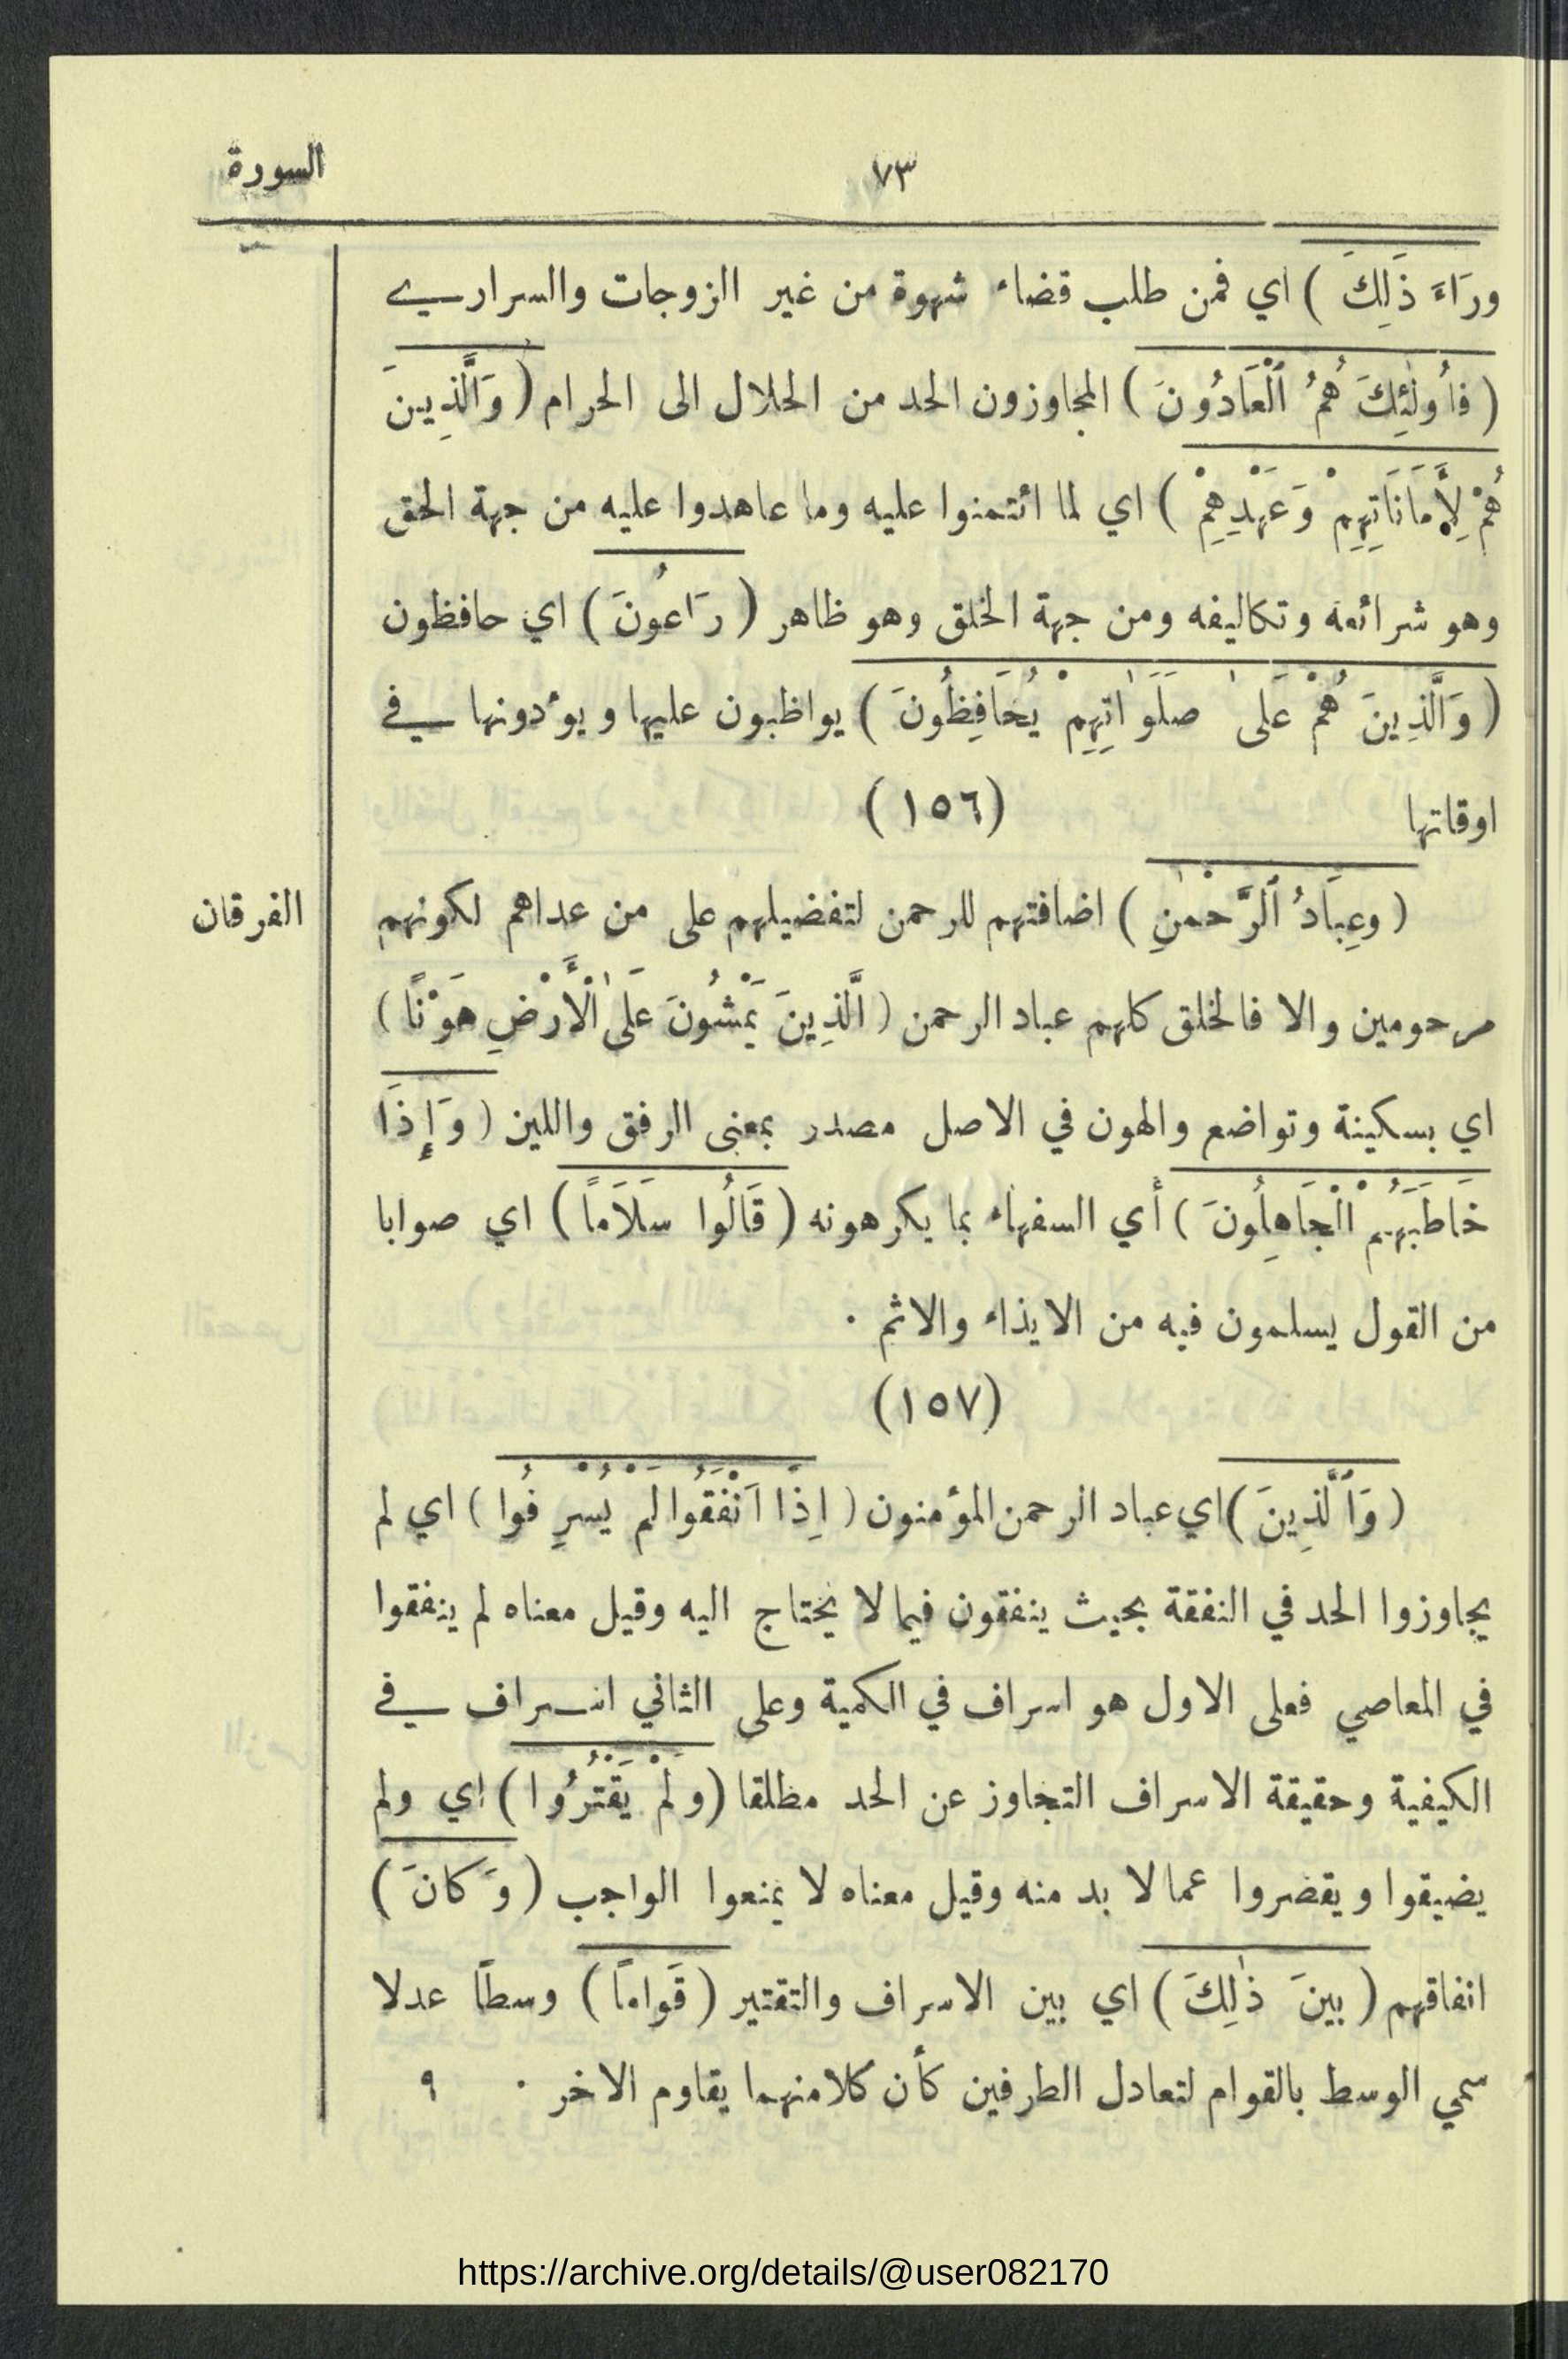 السورة
٧٣
ورَاءَ ذَلِكَ ) اي فمن طلب قضاء شهوة من غير الزوجات والسراري
( فأُولَٰئِكَ هُمُ ٱلْعَادُونَ ) المجاوزون الحد من الحلال الى الحرام ( وَالَّذِينَ
هُمْ لِأَمَانَاتِهِمْ وَعَهْدِهِمْ ) اي لما ائتمنوا عليه وما عاهدوا عليه من جهة الحق
وهو شرائعه وتكاليفه ومن جهة الخلق وهو ظاهر ( رَاعُونَ ) اي حافظون
( وَالَّذِينَ هُمْ عَلَىٰ صَلَوَاتِهِمْ يُحَافِظُونَ ) يواظبون عليها ويؤدونها في
اوقاتها
(١٥٦)
الفرقان
( وعِبَادُ ٱلرَّحْمٰنِ ) اضافتهم للرحمن لتفضيلهم على من عداهم لكونهم
مرحومين والا فالخلق كلهم عباد الرحمن ( الَّذِينَ يَمْشُونَ عَلَىٰ الْأَرْضِ هَوْنًا )
اي بسكينة وتواضع والهون في الاصل مصدر بمعنى الرفق واللين ( وَإِذَا
خَاطَبَهُمُ الْجَاهِلُونَ ) أي السفهاء بما يكرهونه ( قَالُوا سَلَامًا ) اي صوابا
من القول يسلمون فيه من الايذاء والاثم ٠
(١٥٧)
( وَٱلَّذِينَ ) اي عباد الرحمن المؤمنون ( اِذَا اَنْفَقُوا لَمْ يُسْرِفُوا ) اي لم
يجاوزوا الحد في النفقة بحيث ينفقون فيما لا يحتاج اليه وقيل معناه لم ينفقوا
في المعاصي فعلى الاول هو اسراف في الكمية وعلى الثاني اسراف في
الكيفية وحقيقة الاسراف التجاوز عن الحد مطلقا ( ولَمْ يَقْتُرُوا ) اي ولم
يضيقوا ويقصروا عما لا بد منه وقيل معناه لا يمنعوا الواجب ( وَكَانَ )
انفاقهم ( بينَ ذٰلِكَ ) اي بين الاسراف والتقتير ( قَوامًا ) وسطًا عدلا
سمي الوسط بالقوام لتعادل الطرفين كأن كلا منهما يقاوم الاخر ٠ ٩
https://archive.org/details/@user082170